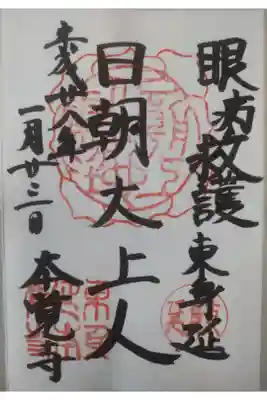 眼病救護 東身延
日朝大上人
平成廿八年一月廿三日 本覚寺